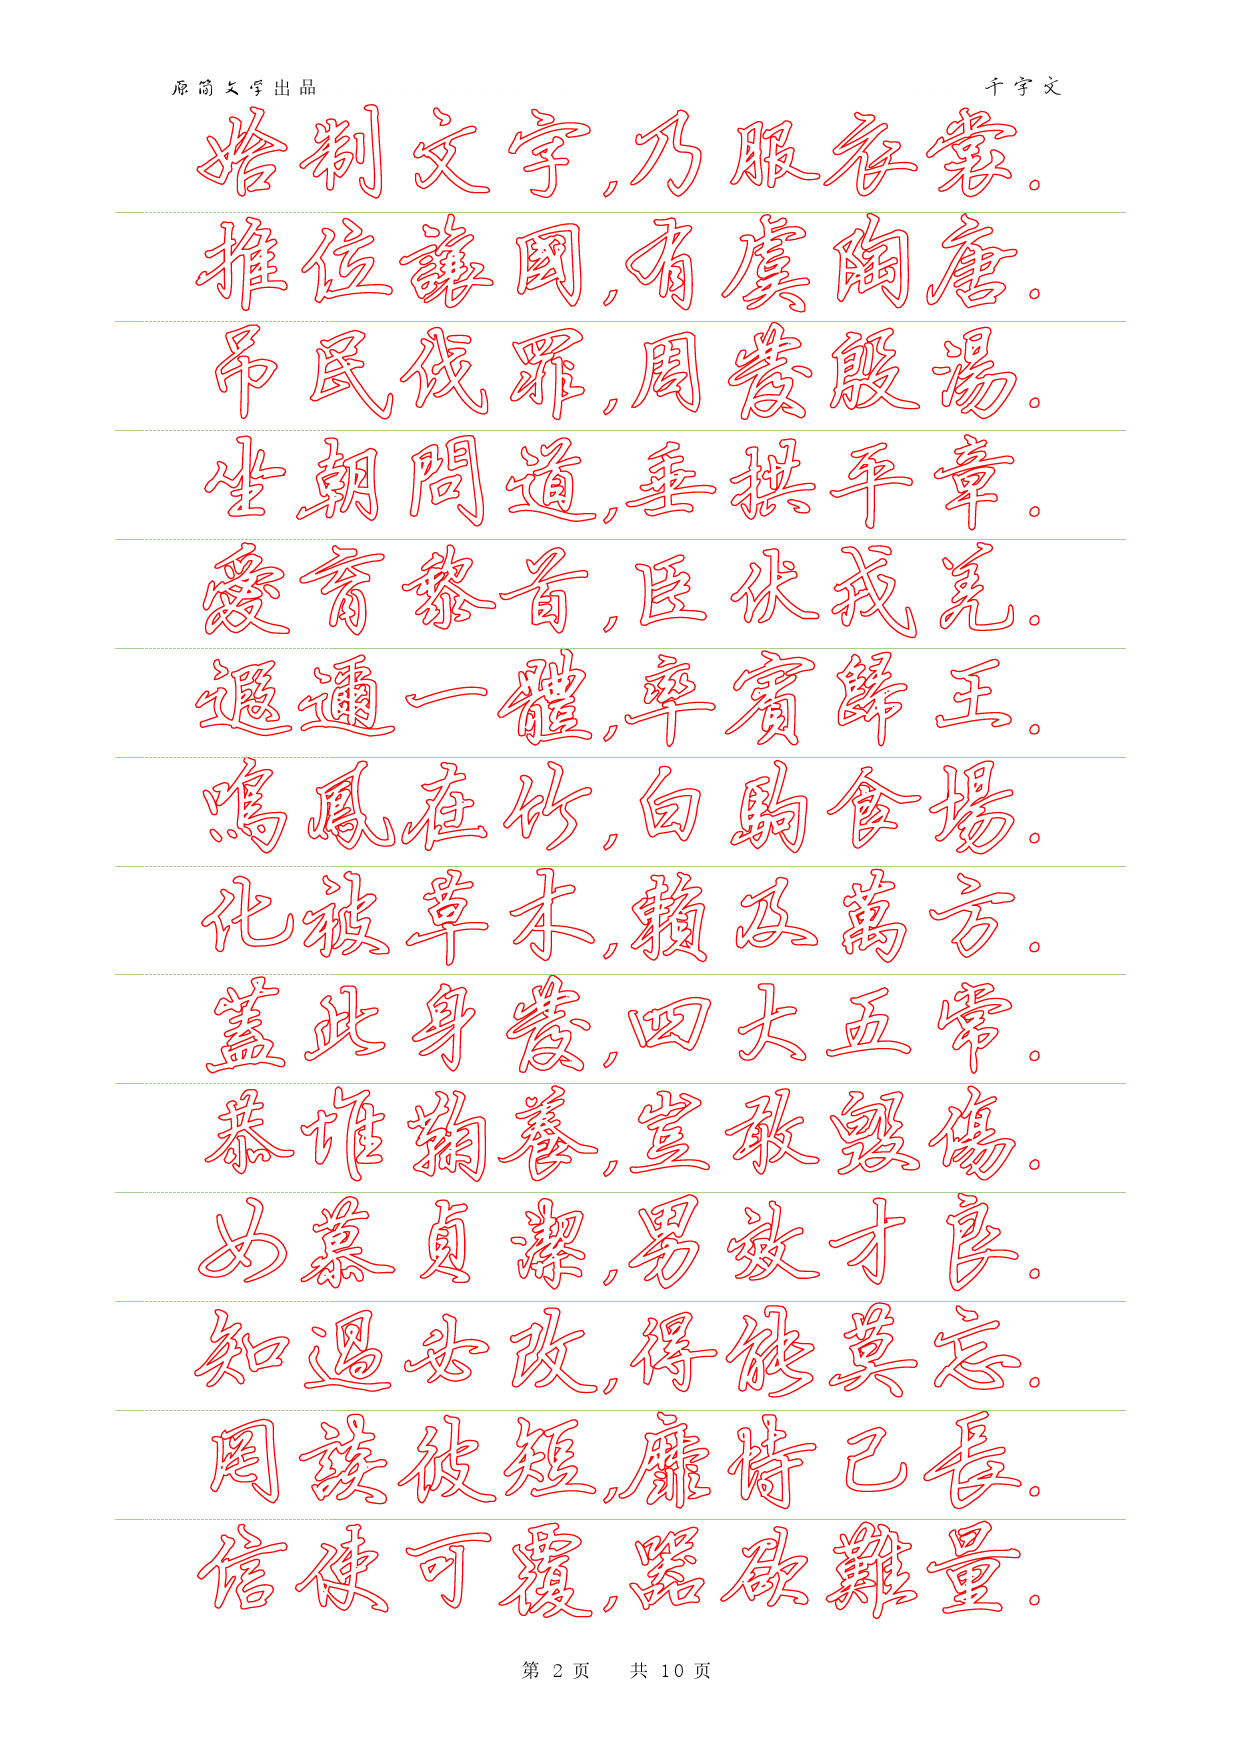 原简文学出品 千字文
始制文字,乃服衣裳.
推位讓國,有虞陶唐.
吊民伐罪,周發殷湯.
坐朝問道,垂拱平章.
愛育黎首,臣伏戎羌.
遐邇一體,率賓歸王.
鳴鳳在竹,白駒食場.
化被草木,賴及萬方.
蓋此身發,四大五常.
恭惟鞠養,豈敢毀傷.
女慕貞潔,男效才良.
知過必改,得能莫忘.
罔談彼短,靡恃己長.
信使可覆,器欲難量.
第 2 页 共 10 页